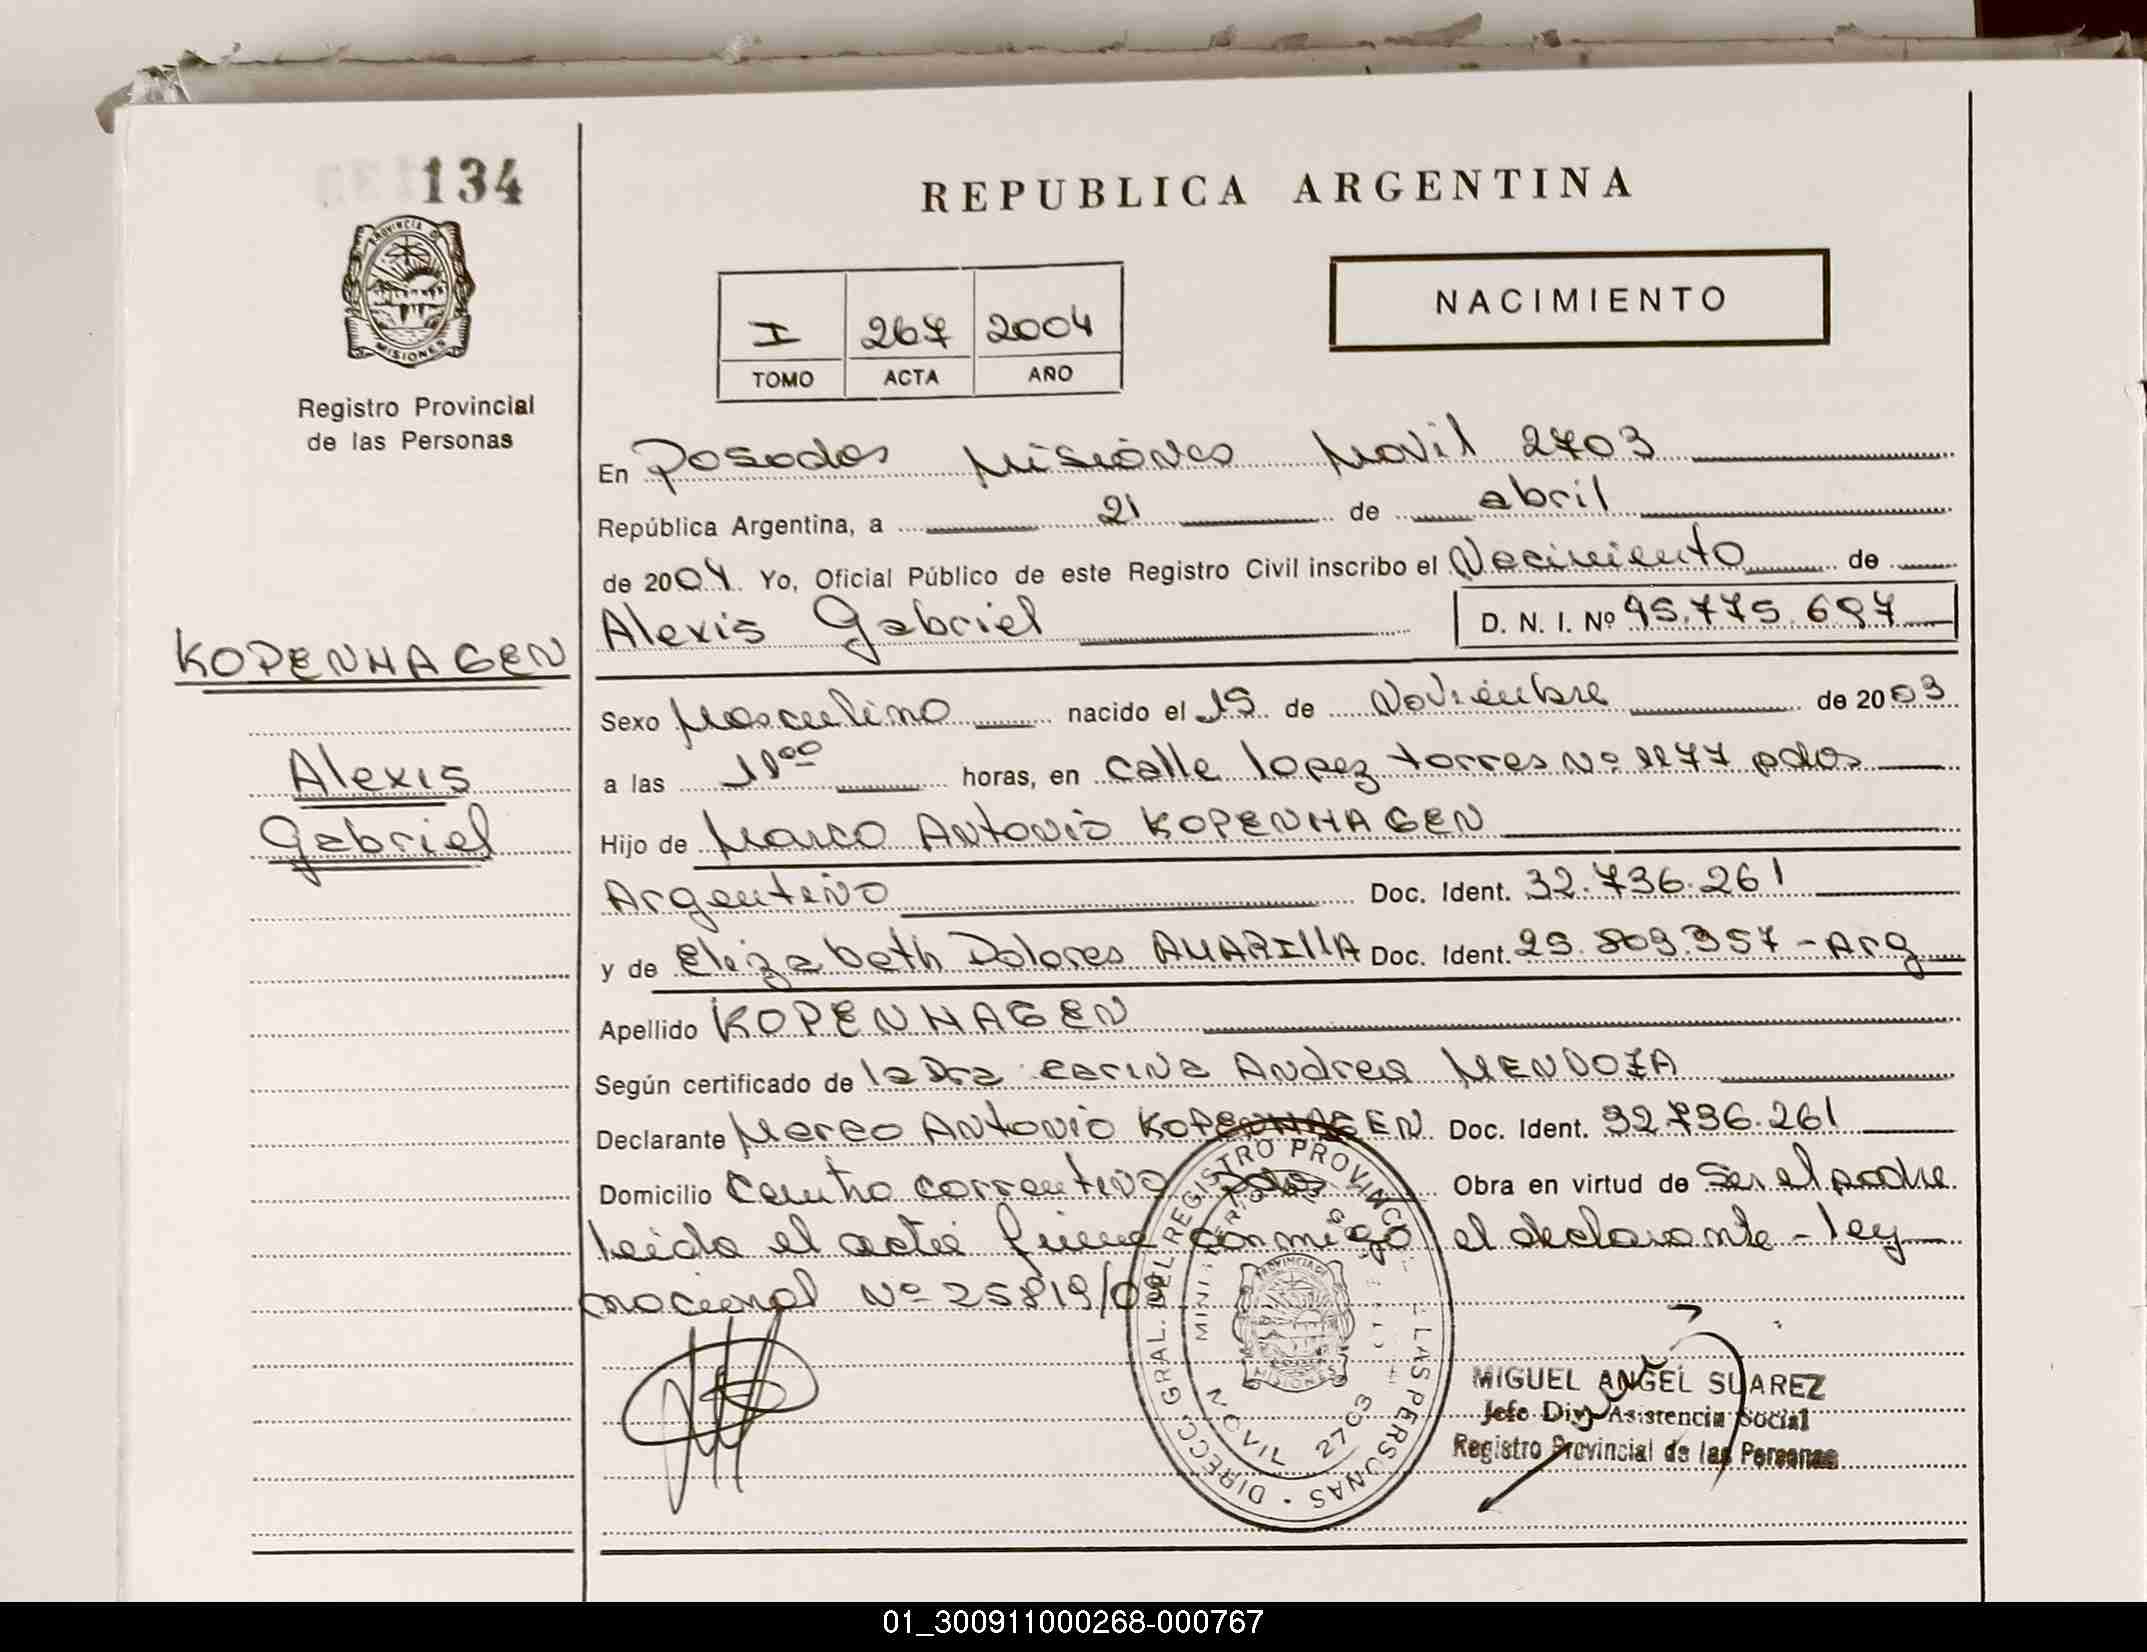 134
PROVINCIA DE
MISIONES
Registro Provincial
de las Personas
KOPENHAGEN
Alexis
Gabriel
REPUBLICA ARGENTINA
NACIMIENTO
I 267 2004
TOMO ACTA AÑO
En Posadas Misiones Movil 2703
República Argentina, a 21 de abril
de 2004. Yo, Oficial Público de este Registro Civil inscribo el Nacimiento de
Alexis Gabriel D. N. I. Nº 45.775.697
Sexo Masculino nacido el 15 de Noviembre de 2003
a las 11 00 horas, en calle lopez torres Nº 1177 pdas
Hijo de Marco Antonio KOPENHAGEN
Argentino Doc. Ident. 32.736.261
y de Elizabeth Dolores AUARILLA Doc. Ident. 25.809.357 - Arg
Apellido KOPENHAGEN
Según certificado de la Dra Carina Andrea MENDOZA
Declarante Marco Antonio KOPENHAGEN Doc. Ident. 32.736.261
Domicilio Centro correntino pdas Obra en virtud de Ser el padre
leida el acta firma conmigo el declarante - ley
nacional Nº 25819/03
DIRECC. GRAL. DEL REGISTRO PROVINCIAL LAS PERSONAS
MOVIL 2703
PROVINCIA DE
MISIONES
MIGUEL ANGEL SUAREZ
Jefe Div. Asistencia Social
Registro Provincial de las Personas
01_300911000268-000767